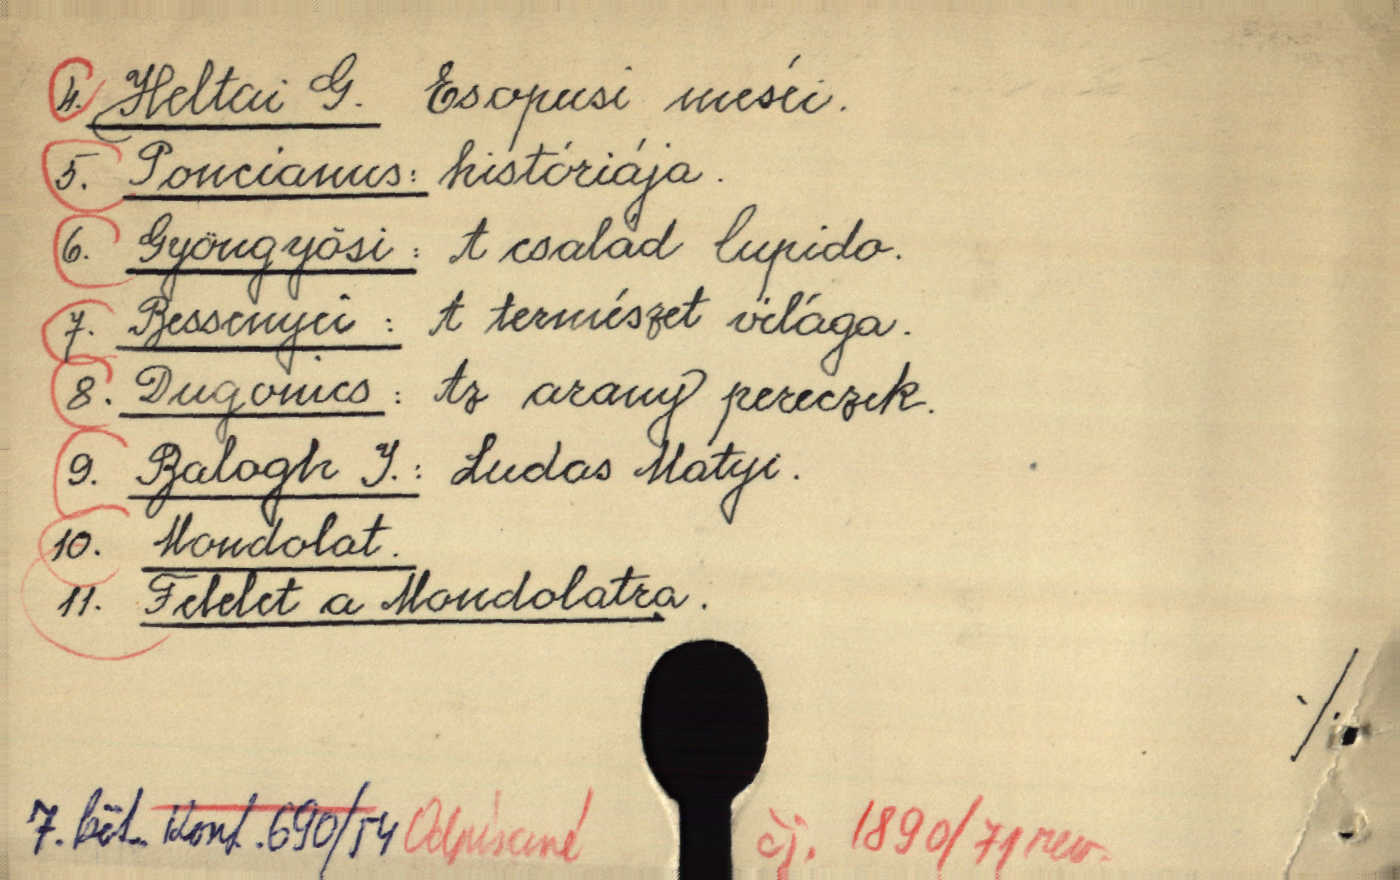 4. Heltai G. Esopusi meséi.
5. Poncianus: históriája.
6. Gyöngyösi: A család Cupido.
7. Bessenyei: A természet világa.
8. Dugonics: Az arany pereczek.
9. Balogh I.: Ludas Matyi.
10. Mondolat.
11. Felelet a Mondolatra.
7. köt. Konf. 690/54 Odpísané čj. 1890/71 rev.